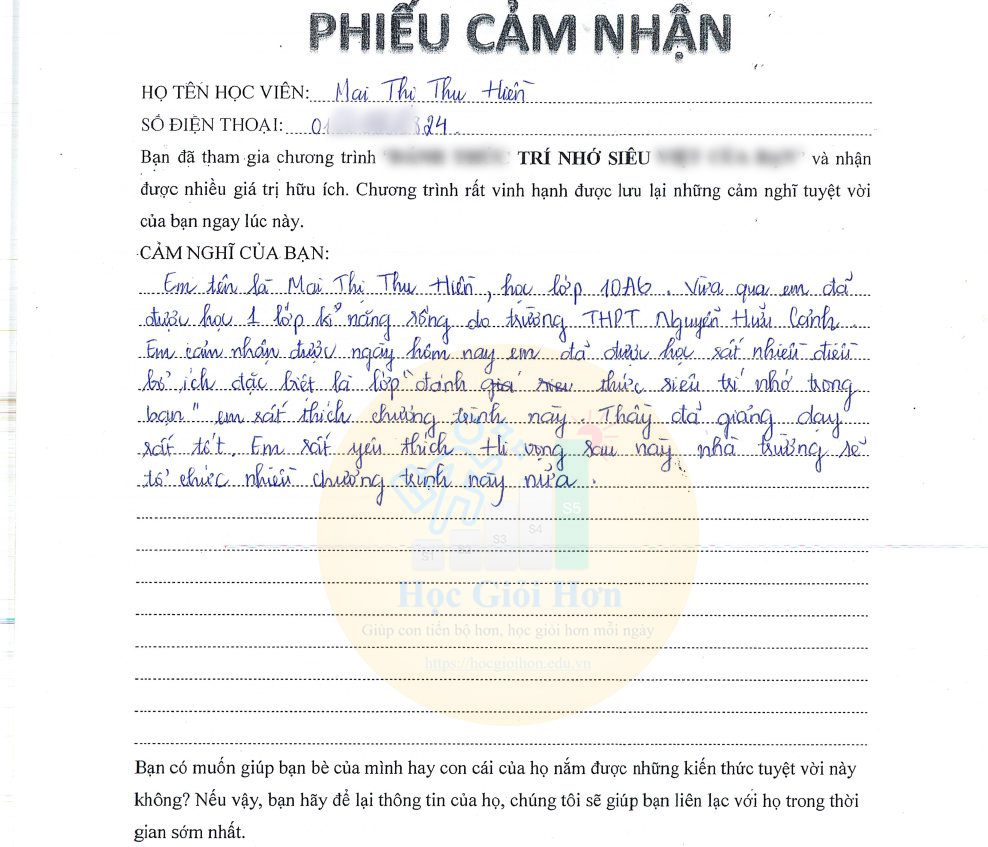 PHIẾU CẢM NHẬN
HỌ TÊN HỌC VIÊN: Mai Thị Thu Hiền
SỐ ĐIỆN THOẠI: 01 24.
Bạn đã tham gia chương trình TRÍ NHỚ SIÊU và nhận
được nhiều giá trị hữu ích. Chương trình rất vinh hạnh được lưu lại những cảm nghĩ tuyệt vời
của bạn ngay lúc này.
CẢM NGHĨ CỦA BẠN:
Em tên là Mai Thị Thu Hiền, học lớp 10A6. Vừa qua em đã
được học 1 lớp kĩ năng sống do trường THPT Nguyễn Hữu Cảnh.
Em cảm nhận được ngày hôm nay em đã được học rất nhiều điều
bổ ích đặc biệt là lớp "đánh giá siêu thức siêu trí nhớ trong
bạn" em rất thích chương trình này. Thầy đã giảng dạy
rất tốt. Em rất yêu thích Hi vọng sau này nhà trường sẽ
tổ chức nhiều chương trình này nữa.
S1 S2 S3 S4 S5
Học Giỏi Hơn
Giúp con tiến bộ hơn, học giỏi hơn mỗi ngày
https://hocgioihon.edu.vn
Bạn có muốn giúp bạn bè của mình hay con cái của họ nắm được những kiến thức tuyệt vời này
không? Nếu vậy, bạn hãy để lại thông tin của họ, chúng tôi sẽ giúp bạn liên lạc với họ trong thời
gian sớm nhất.